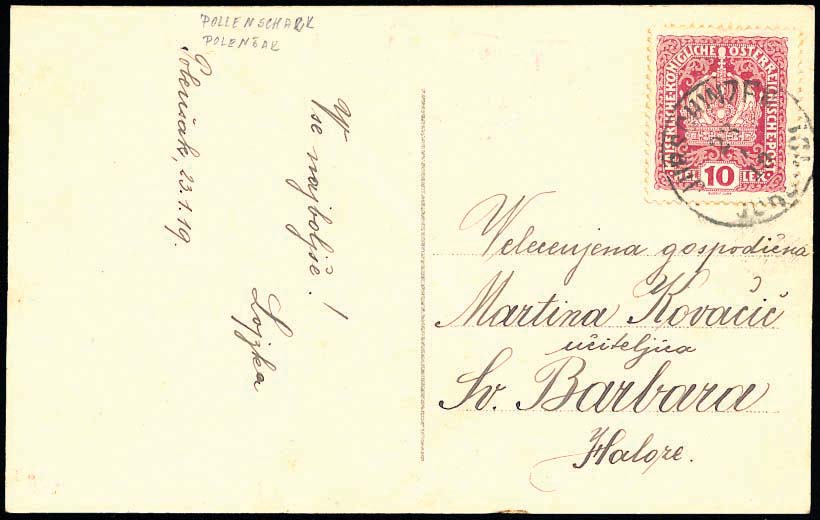 POLLENSCHAKK
POLENŠAK
Polenšak, 23.1.19.
Vse najboljše!
Lojzka
KAISERLICHE KÖNIGLICHE ÖSTERREICHISCHE POST
10
Velecenjena gospodična
Martina Kovačič
učiteljica
Sv. Barbara
Haloze.